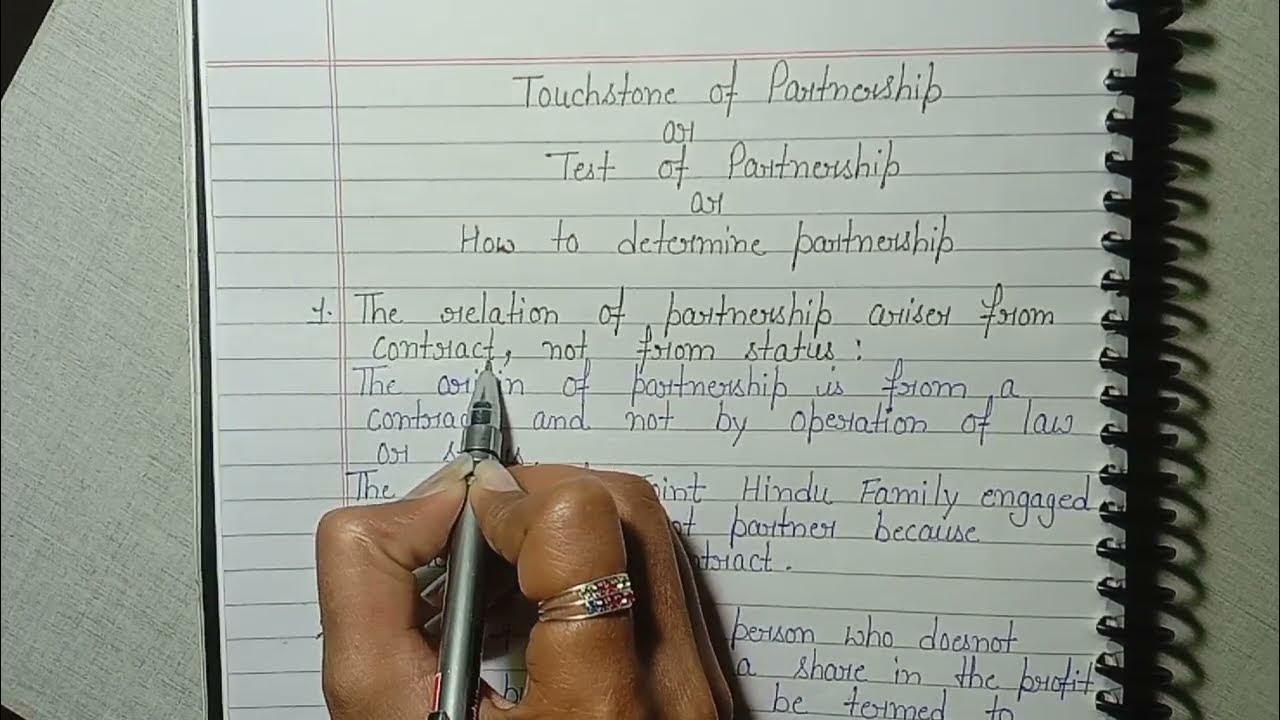 Touchstone of Partnership
or
Test of Partnership
or
How to determine partnership
1. The relation of partnership arises from
contract, not from status:
The of partnership is from a
and not by operation of law
or
The Hindu Family engaged
partner because
person who doesnot
a share in the profit
be termed to